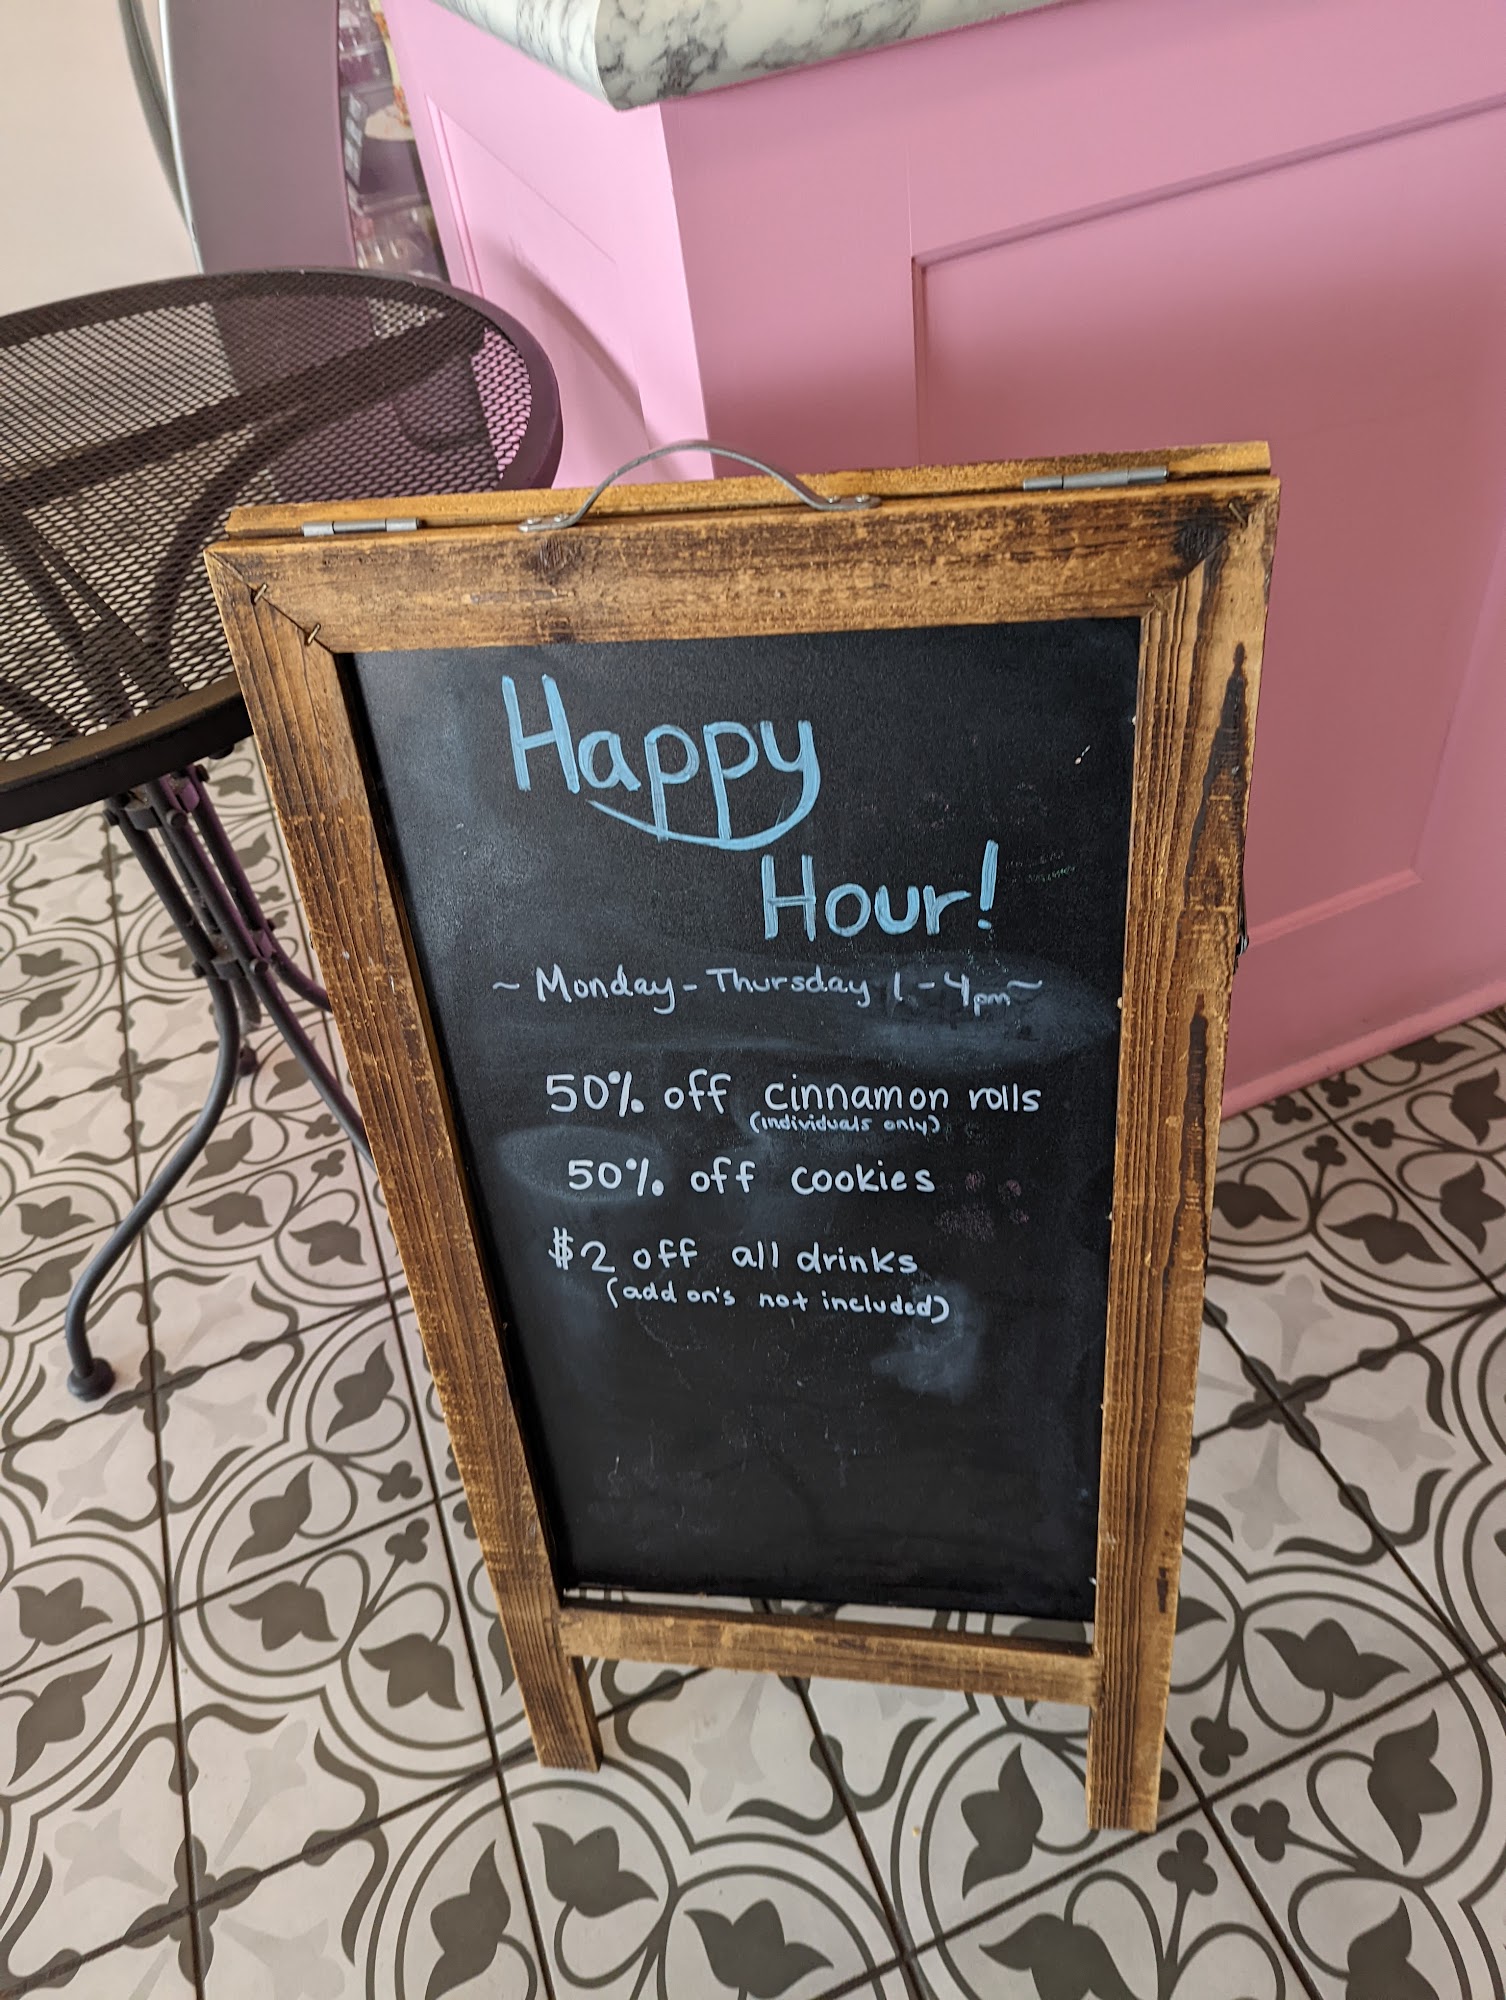 Happy
Hour!
~ Monday - Thursday 1 - 4pm ~
50% off cinnamon rolls
(individuals only)
50% off cookies
$2 off all drinks
(add on's not included)